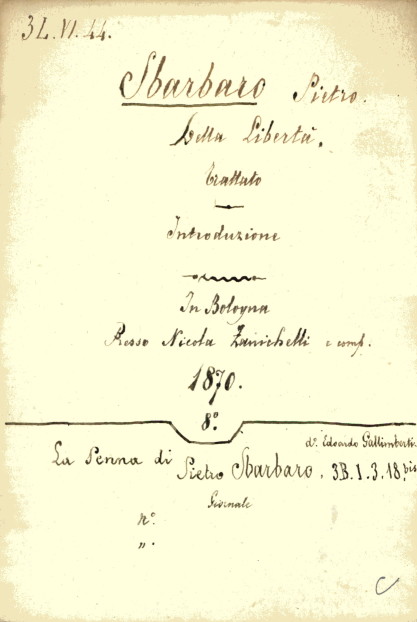 3L.VI.44.
Sbarbaro Pietro.
Della Libertà.
Trattato
Introduzione
In Bologna
Presso Nicola Zanichelli e comp.
1870.
8°.
d.r Edoardo Gallimberti.
La Penna di Pietro Sbarbaro. 3B.1.3.18.bis
Giornale
n°.
".
C